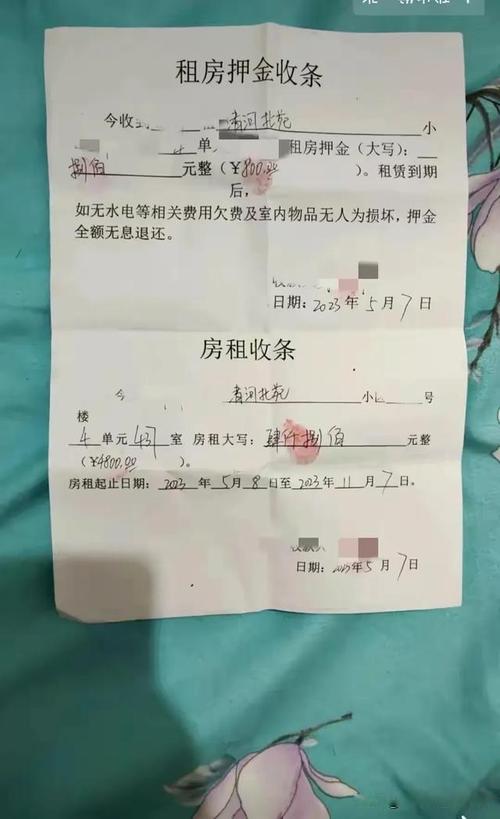 租房押金收条
今收 清河北苑 小
4 单 租房押金（大写）：
捌佰 元整（￥800.00 ）。租赁到期
后，
如无水电等相关费用欠费及室内物品无人为损坏，押金
全额无息退还。
日期：2023年 5月 7日
房租收条
今 清河北苑 小 号
楼
4 单元 437 室 房租大写：肆仟捌佰 元整
（￥4800.00 ）。
房租起止日期：2023 年 5月 8日至 2023年 11月 7日。
日期：2023年 5月 7日